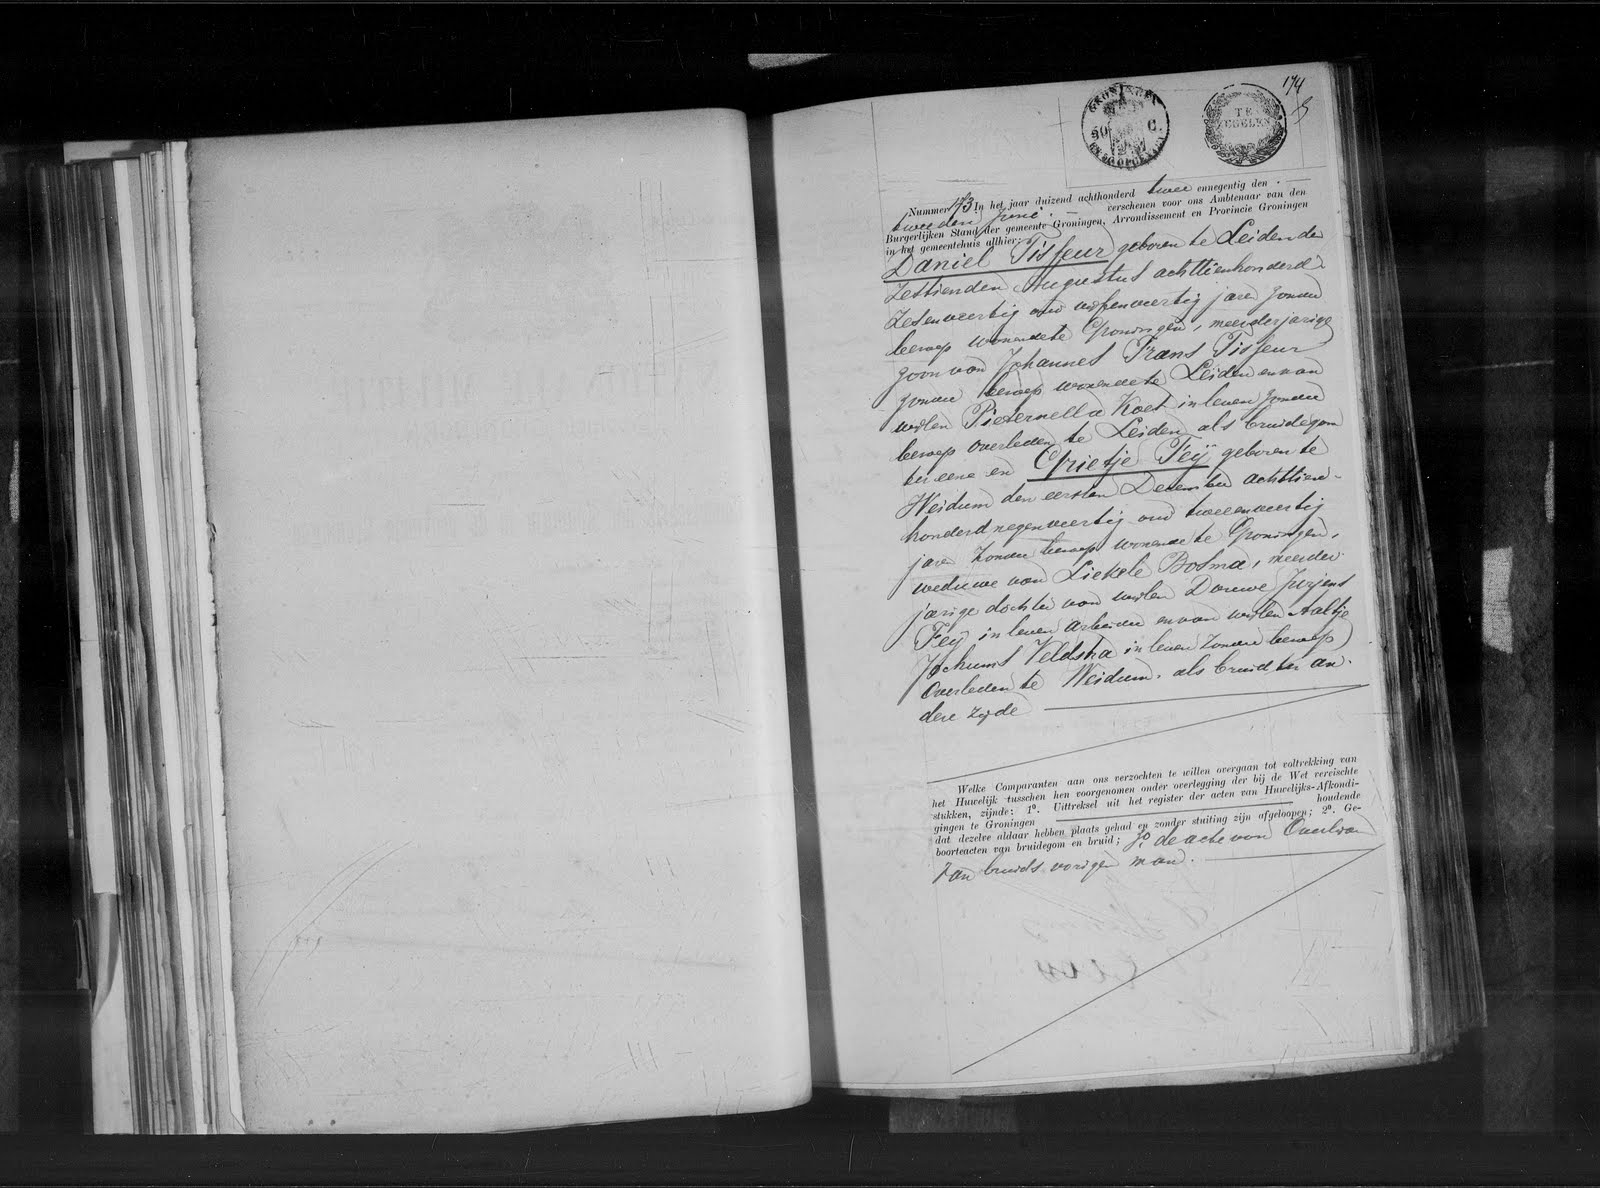 174
GRONINGEN
50 C.
TE
ZEGELEN
Nummer 173 In het jaar duizend achthonderd twee ennegentig den
tweeden Junij verschenen voor ons Ambtenaar van den
Burgerlijken Stand der gemeente Groningen, Arrondissement en Provincie Groningen
in het gemeentehuis alhier:
Daniel Tisseur geboren te Leiden de
zestienden Augustus achttienhonderd
zesenveertig oud vijfenveertig jaren zonder
beroep wonende te Groningen, meerderjarige
zoon van Johannes Frans Tisseur
zonder beroep wonende te Leiden en van
wijlen Pieternella Koet in leven zonder
beroep overleden te Leiden als bruidegom
ter eene en Grietje Feij geboren te
Weidum den eersten December achttien-
honderd negenveertig oud tweeenveertig
jare zonder beroep wonende te Groningen,
weduwe van Liekele Bosma, meerder-
jarige dochter van wijlen Douwe Jurjens
Feij in leven arbeider en van wijlen Aaltje
Jochums Veldstra in leven zonder beroep
Overleden te Weidum, als bruid ter an-
dere zijde
Welke Comparanten aan ons verzochten te willen overgaan tot voltrekking van
het Huwelijk tusschen hen voorgenomen onder overlegging der bij de Wet vereischte
stukken, zijnde: 1º. Uittreksel uit het register der acten van Huwelijks-Afkondi-
gingen te Groningen houdende
dat dezelve aldaar hebben plaats gehad en zonder stuiting zijn afgeloopen; 2º. Ge-
boorteacten van bruidegom en bruid; 3º de acte van Overlijden
van bruids vorigen man.